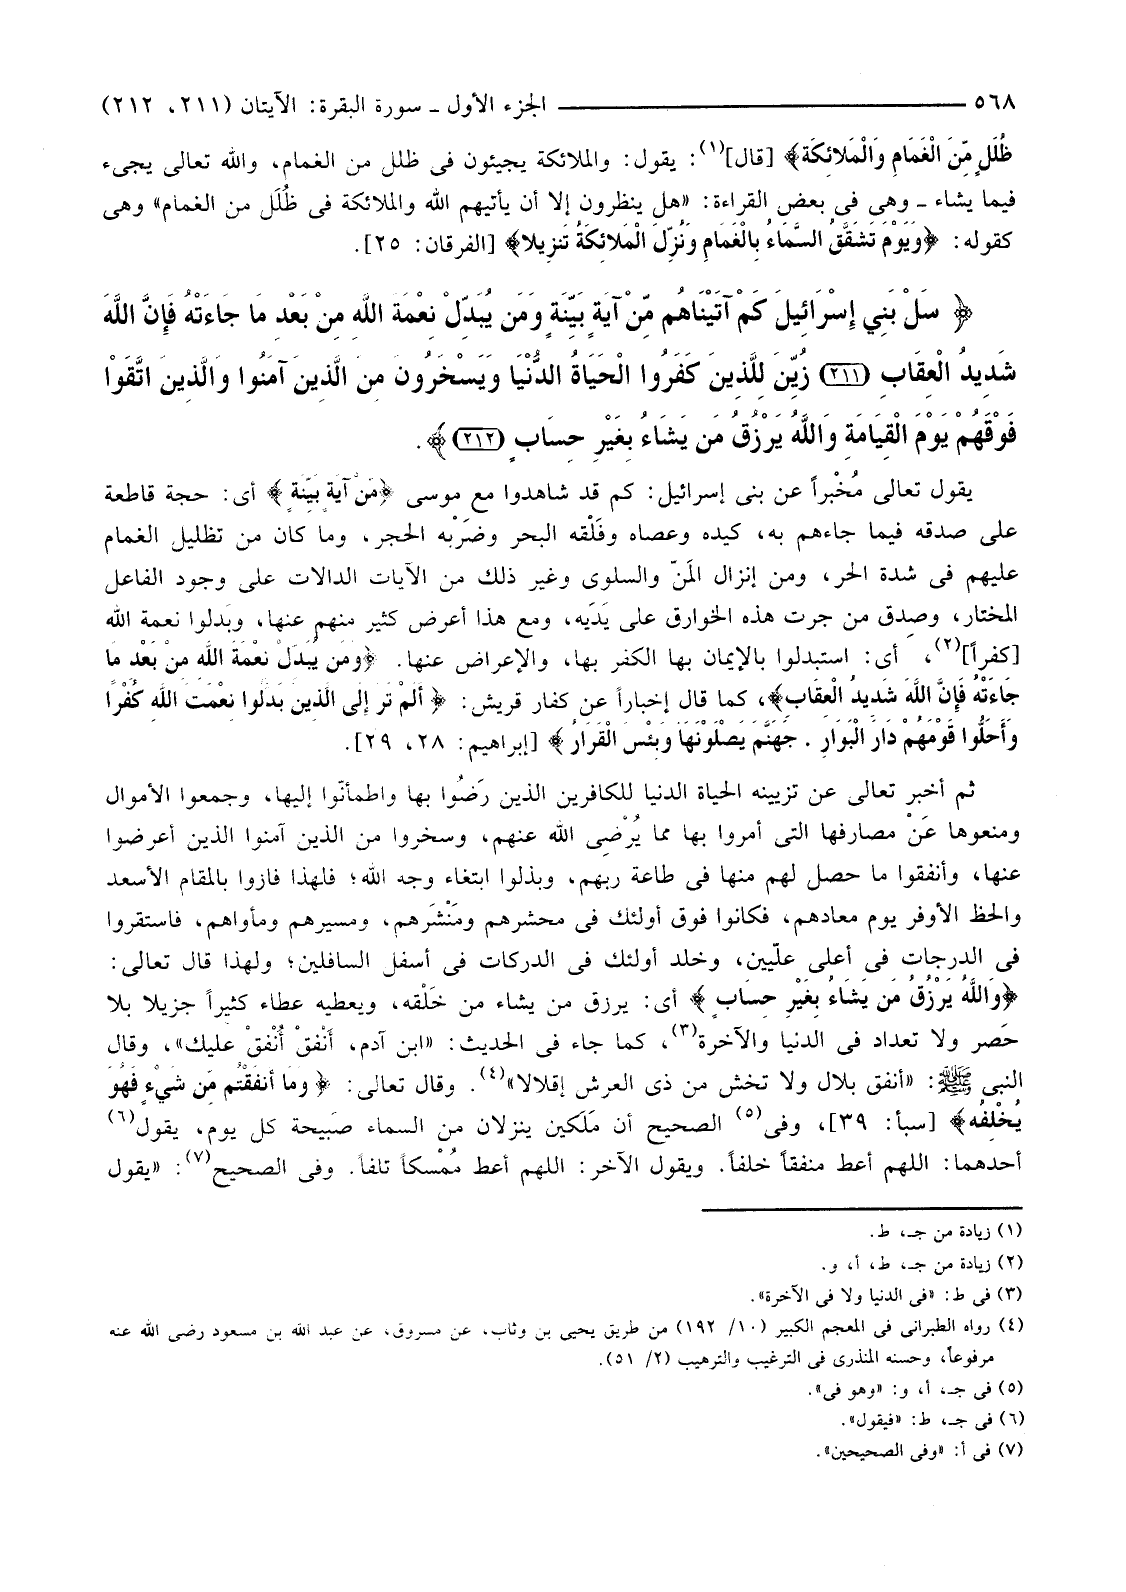 ٥٦٨ ــــــــ الجزء الأول ـ سورة البقرة: الآيتان (٢١١، ٢١٢)
ظُلَلٍ مِّنَ الْغَمَامِ وَالْمَلائِكَة﴾ [قال](١): يقول: والملائكة يجيئون فى ظلل من الغمام، والله تعالى يجىء
فيما يشاء ـ وهى فى بعض القراءة: «هل ينظرون إلا أن يأتيهم الله والملائكة فى ظُلَل من الغمام» وهى
كقوله: ﴿وَيَوْمَ تَشَقَّقُ السَّمَاءُ بِالْغَمَامِ وَنُزِّلَ الْمَلائِكَةُ تَنزِيلا﴾ [الفرقان: ٢٥].
﴿ سَلْ بَنِي إِسْرَائِيلَ كَمْ آتَيْنَاهُم مِّنْ آيَةٍ بَيِّنَةٍ وَمَن يُبَدِّلْ نِعْمَةَ اللَّهِ مِنْ بَعْدِ مَا جَاءَتْهُ فَإِنَّ اللَّهَ
شَدِيدُ الْعِقَابِ (٢١١) زُيِّنَ لِلَّذِينَ كَفَرُوا الْحَيَاةُ الدُّنْيَا وَيَسْخَرُونَ مِنَ الَّذِينَ آمَنُوا وَالَّذِينَ اتَّقَوْا
فَوْقَهُمْ يَوْمَ الْقِيَامَةِ وَاللَّهُ يَرْزُقُ مَن يَشَاءُ بِغَيْرِ حِسَابٍ (٢١٢) ﴾ .
يقول تعالى مُخْبراً عن بنى إسرائيل: كم قد شاهدوا مع موسى ﴿مِّنْ آيَةٍ بَيِّنَةٍ ﴾ أى: حجة قاطعة
على صدقه فيما جاءهم به، كيده وعصاه وفَلْقه البحر وضَرْبه الحجر، وما كان من تظليل الغمام
عليهم فى شدة الحر، ومن إنزال المَنّ والسلوى وغير ذلك من الآيات الدالات على وجود الفاعل
المختار، وصدق من جرت هذه الخوارق على يَدَيه، ومع هذا أعرض كثير منهم عنها، وبَدلوا نعمة الله
[كفراً](٢)، أى: استبدلوا بالإيمان بها الكفر بها، والإعراض عنها. ﴿وَمَن يُبَدِّلْ نِعْمَةَ اللَّهِ مِنْ بَعْدِ مَا
جَاءَتْهُ فَإِنَّ اللَّهَ شَدِيدُ الْعِقَابِ﴾، كما قال إخباراً عن كفار قريش: ﴿ أَلَمْ تَرَ إِلَى الَّذِينَ بَدَّلُوا نِعْمَتَ اللَّهِ كُفْرًا
وَأَحَلُّوا قَوْمَهُمْ دَارَ الْبَوَارِ . جَهَنَّمَ يَصْلَوْنَهَا وَبِئْسَ الْقَرَارُ ﴾ [إبراهيم: ٢٨، ٢٩].
ثم أخبر تعالى عن تزيينه الحياة الدنيا للكافرين الذين رَضُوا بها واطمأنّوا إليها، وجمعوا الأموال
ومنعوها عَنْ مصارفها التى أمروا بها مما يُرْضِى الله عنهم، وسخروا من الذين آمنوا الذين أعرضوا
عنها، وأنفقوا ما حصل لهم منها فى طاعة ربهم، وبذلوا ابتغاء وجه الله؛ فلهذا فازوا بالمقام الأسعد
والحظ الأوفر يوم معادهم، فكانوا فوق أولئك فى محشرهم ومَنْشَرهم، ومسيرهم ومأواهم، فاستقروا
فى الدرجات فى أعلى علّيين، وخلد أولئك فى الدركات فى أسفل السافلين؛ ولهذا قال تعالى:
﴿وَاللَّهُ يَرْزُقُ مَن يَشَاءُ بِغَيْرِ حِسَابٍ ﴾ أى: يرزق من يشاء من خَلْقه، ويعطيه عطاء كثيراً جزيلا بلا
حَصر ولا تعداد فى الدنيا والآخرة(٣)، كما جاء فى الحديث: «ابن آدم، أَنْفقْ أُنْفقْ عليك»، وقال
النبى ﷺ: «أنفق بلال ولا تخش من ذى العرش إقلالا»(٤). وقال تعالى: ﴿ وَمَا أَنفَقْتُم مِّن شَيْءٍ فَهُوَ
يُخْلِفُه﴾ [سبأ: ٣٩]، وفى(٥) الصحيح أن مَلَكين ينزلان من السماء صَبيحة كل يوم، يقول(٦)
أحدهما: اللهم أعط منفقاً خلفاً. ويقول الآخر: اللهم أعط مُمْسكاً تلفاً. وفى الصحيح(٧): «يقول
(١) زيادة من جـ، ط.
(٢) زيادة من جـ، ط، أ، و.
(٣) فى ط: «فى الدنيا ولا فى الآخرة».
(٤) رواه الطبرانى فى المعجم الكبير (١٠/ ١٩٢) من طريق يحيى بن وثاب، عن مسروق، عن عبد الله بن مسعود رضى الله عنه
مرفوعاً، وحسنه المنذرى فى الترغيب والترهيب (٢/ ٥١).
(٥) فى جـ، أ، و: «وهو فى».
(٦) فى جـ، ط: «فيقول».
(٧) فى أ: «وفى الصحيحين».